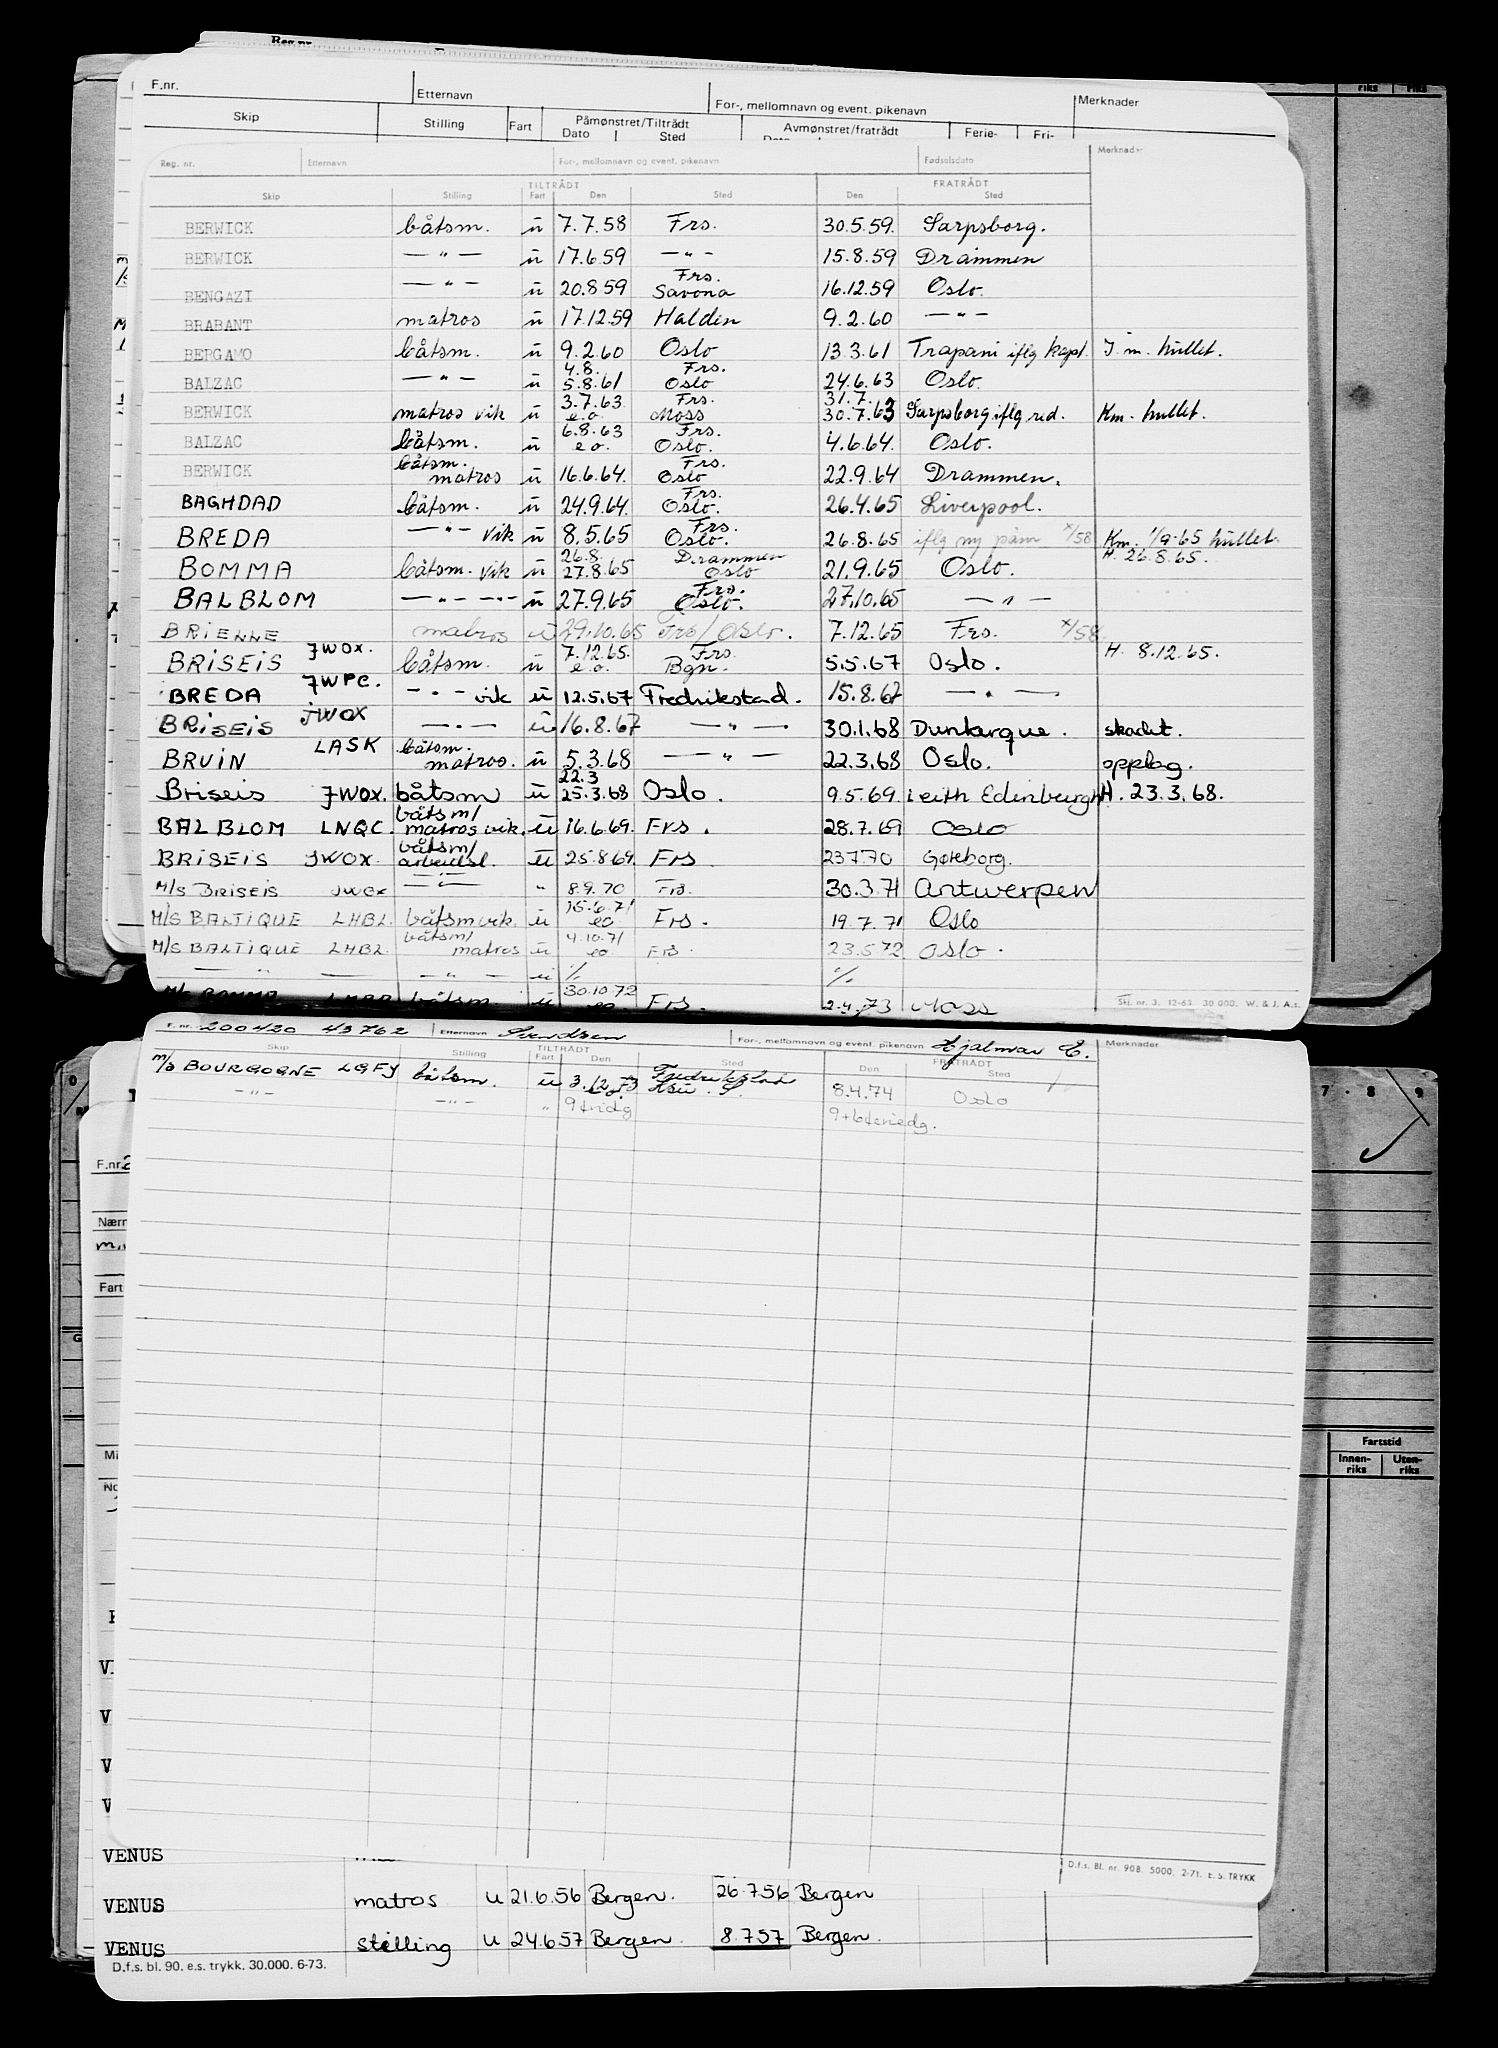 F.nr. Etternavn For-, mellomnavn og event. pikenavn Merknader
Skip Stilling Fart Påmønstret/Tiltrådt Avmønstret/fratrådt Ferie- Fri-
Dato Sted
Reg. nr. Etternavn For-, mellomnavn og event. pikenavn Fødselsdato Merknader
TILTRÅDT FRATRÅDT
Skip Stilling Fart Den Sted Den Sted
BERWICK båtsm. u 7.7.58 Frs. 30.5.59. Sarpsborg.
BERWICK — " — u 17.6.59 — " — 15.8.59 Drammen
BENGAZI — " — u 20.8.59 Frs. Savona 16.12.59 Oslo.
BRABANT matros u 17.12.59 Halden 9.2.60 — " —
BERGAMO båtsm. u 9.2.60 Oslo 13.3.61 Trapani iflg kapt. J.m. hullet.
BALZAC — " — u 4.8. 5.8.61 Frs. Oslo 24.6.63 Oslo.
BERWICK matros vik u 3.7.63 e.o. Frs. Moss 31.7. 30.7.63 Sarpsborg iflg red. Km. hullet.
BALZAC båtsm. u 6.8.63 e.o. Frs. Oslo. 4.6.64. Oslo.
BERWICK båtsm. matros u 16.6.64. Frs. Oslo 22.9.64 Drammen.
BAGHDAD båtsm. u 24.9.64. Frs. Oslo. 26.4.65 Liverpool.
BREDA — " — vik u 8.5.65 Frs. Oslo. 26.8.65 iflg ny påm x/58 Km. 1/9-65 hullet.
H. 26.8.65.
BOMMA båtsm. vik u 26.8. 27.8.65 Drammen Oslo 21.9.65 Oslo.
BALBLOM — " — — " — u 27.9.65 Frs. Oslo. 27.10.65 — " —
BRIENNE matros u 29.10.65 Frs/Oslo. 7.12.65 Frs. x/58
BRISEIS JWOX. båtsm. u 7.12.65. e.o. Frs. Bgn. 5.5.67 Oslo. H. 8.12.65.
BREDA JWPC. — " — vik u 12.5.67 Fredrikstad. 15.8.67 — " —
BRISEIS JWOX — " — u 16.8.67 — " — 30.1.68 Dunkerque. skadet.
BRUIN LASK båtsm. matros. u 5.3.68 — " — 22.3.68 Oslo. opplag.
Briseis JWOX. båtsm u 22.3 25.3.68 Oslo. 9.5.69. Leith Edinburgh H. 23.3.68.
BALBLOM LNQC. båtsm/ matros vik. u 16.6.69. Frs. 28.7.69 Oslo
BRISEIS JWOX. båtsm/ arbeidsl. u 25.8.69. Frs. 23.7.70 Gøteborg.
M/S BRISEIS JWOX — " — " 8.9.70 Frs. 30.3.71 Antwerpen
M/S BALTIQUE LHBL. båtsm vik. u 15.6.71 eo Frs. 19.7.71 Oslo
M/S BALTIQUE LHBL. båtsm/ matros u 4.10.71 eo Frs. 23.5.72 Oslo.
— " — — " — u %. %.
M/S BOMMA båtsm. u 30.10.72 eo Frs. 2.4.73 Moss
Skj. nr. 3. 12-63. 30 000. W. & J. A.s.
F. nr. 200420 43762 Etternavn Svendsen For-, mellomnavn og event. pikenavn Hjalmar E. Merknader
TILTRÅDT FRATRÅDT
Skip Stilling Fart Den Sted Den Sted
m/s BOURGOGNE LGFY båtsm. u 3.12.73 Fredrikstad 8.4.74 Oslo
— " — — " — " 9+ridg 9+6feriedg.
D.f.s. Bl. nr. 90B. 5000. 2-71. E.S. TRYKK
7 - 8 9
F.nr.
Nærm
Fart
Fartstid
Innen-riks Uten-riks
VENUS
VENUS matros u 21.6.56 Bergen. 26.7.56 Bergen
VENUS stilling u 24.6.57 Bergen. 8.7.57 Bergen.
D.f.s. bl. 90. e.s. trykk. 30.000. 6-73.